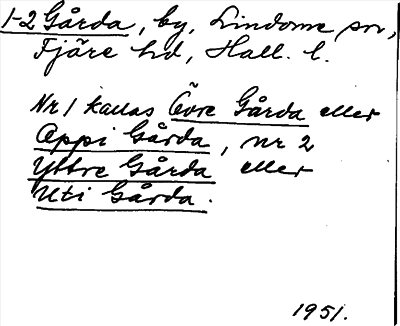 1-2 Gårda, by, Lindome sn,
Fjäre hd, Hall. l.
Nr 1 kallas Övre Gårda eller
Oppi Gårda, nr 2
Yttre Gårda eller
Uti Gårda.
1951.